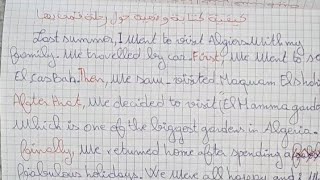 كيفية كتابة وضعية حول رحلة
Last summer, I Want to visit Algiers With my
family. We travelled by car. First, We Went to
El casbah. Then, We saw visited Maquam Elshahid
After that, We decided to visit (El Hamma garden
Which is one of the biggest garden in Algeria.
finally We returned home after spending a
faabulous holidays. We Were all happy and